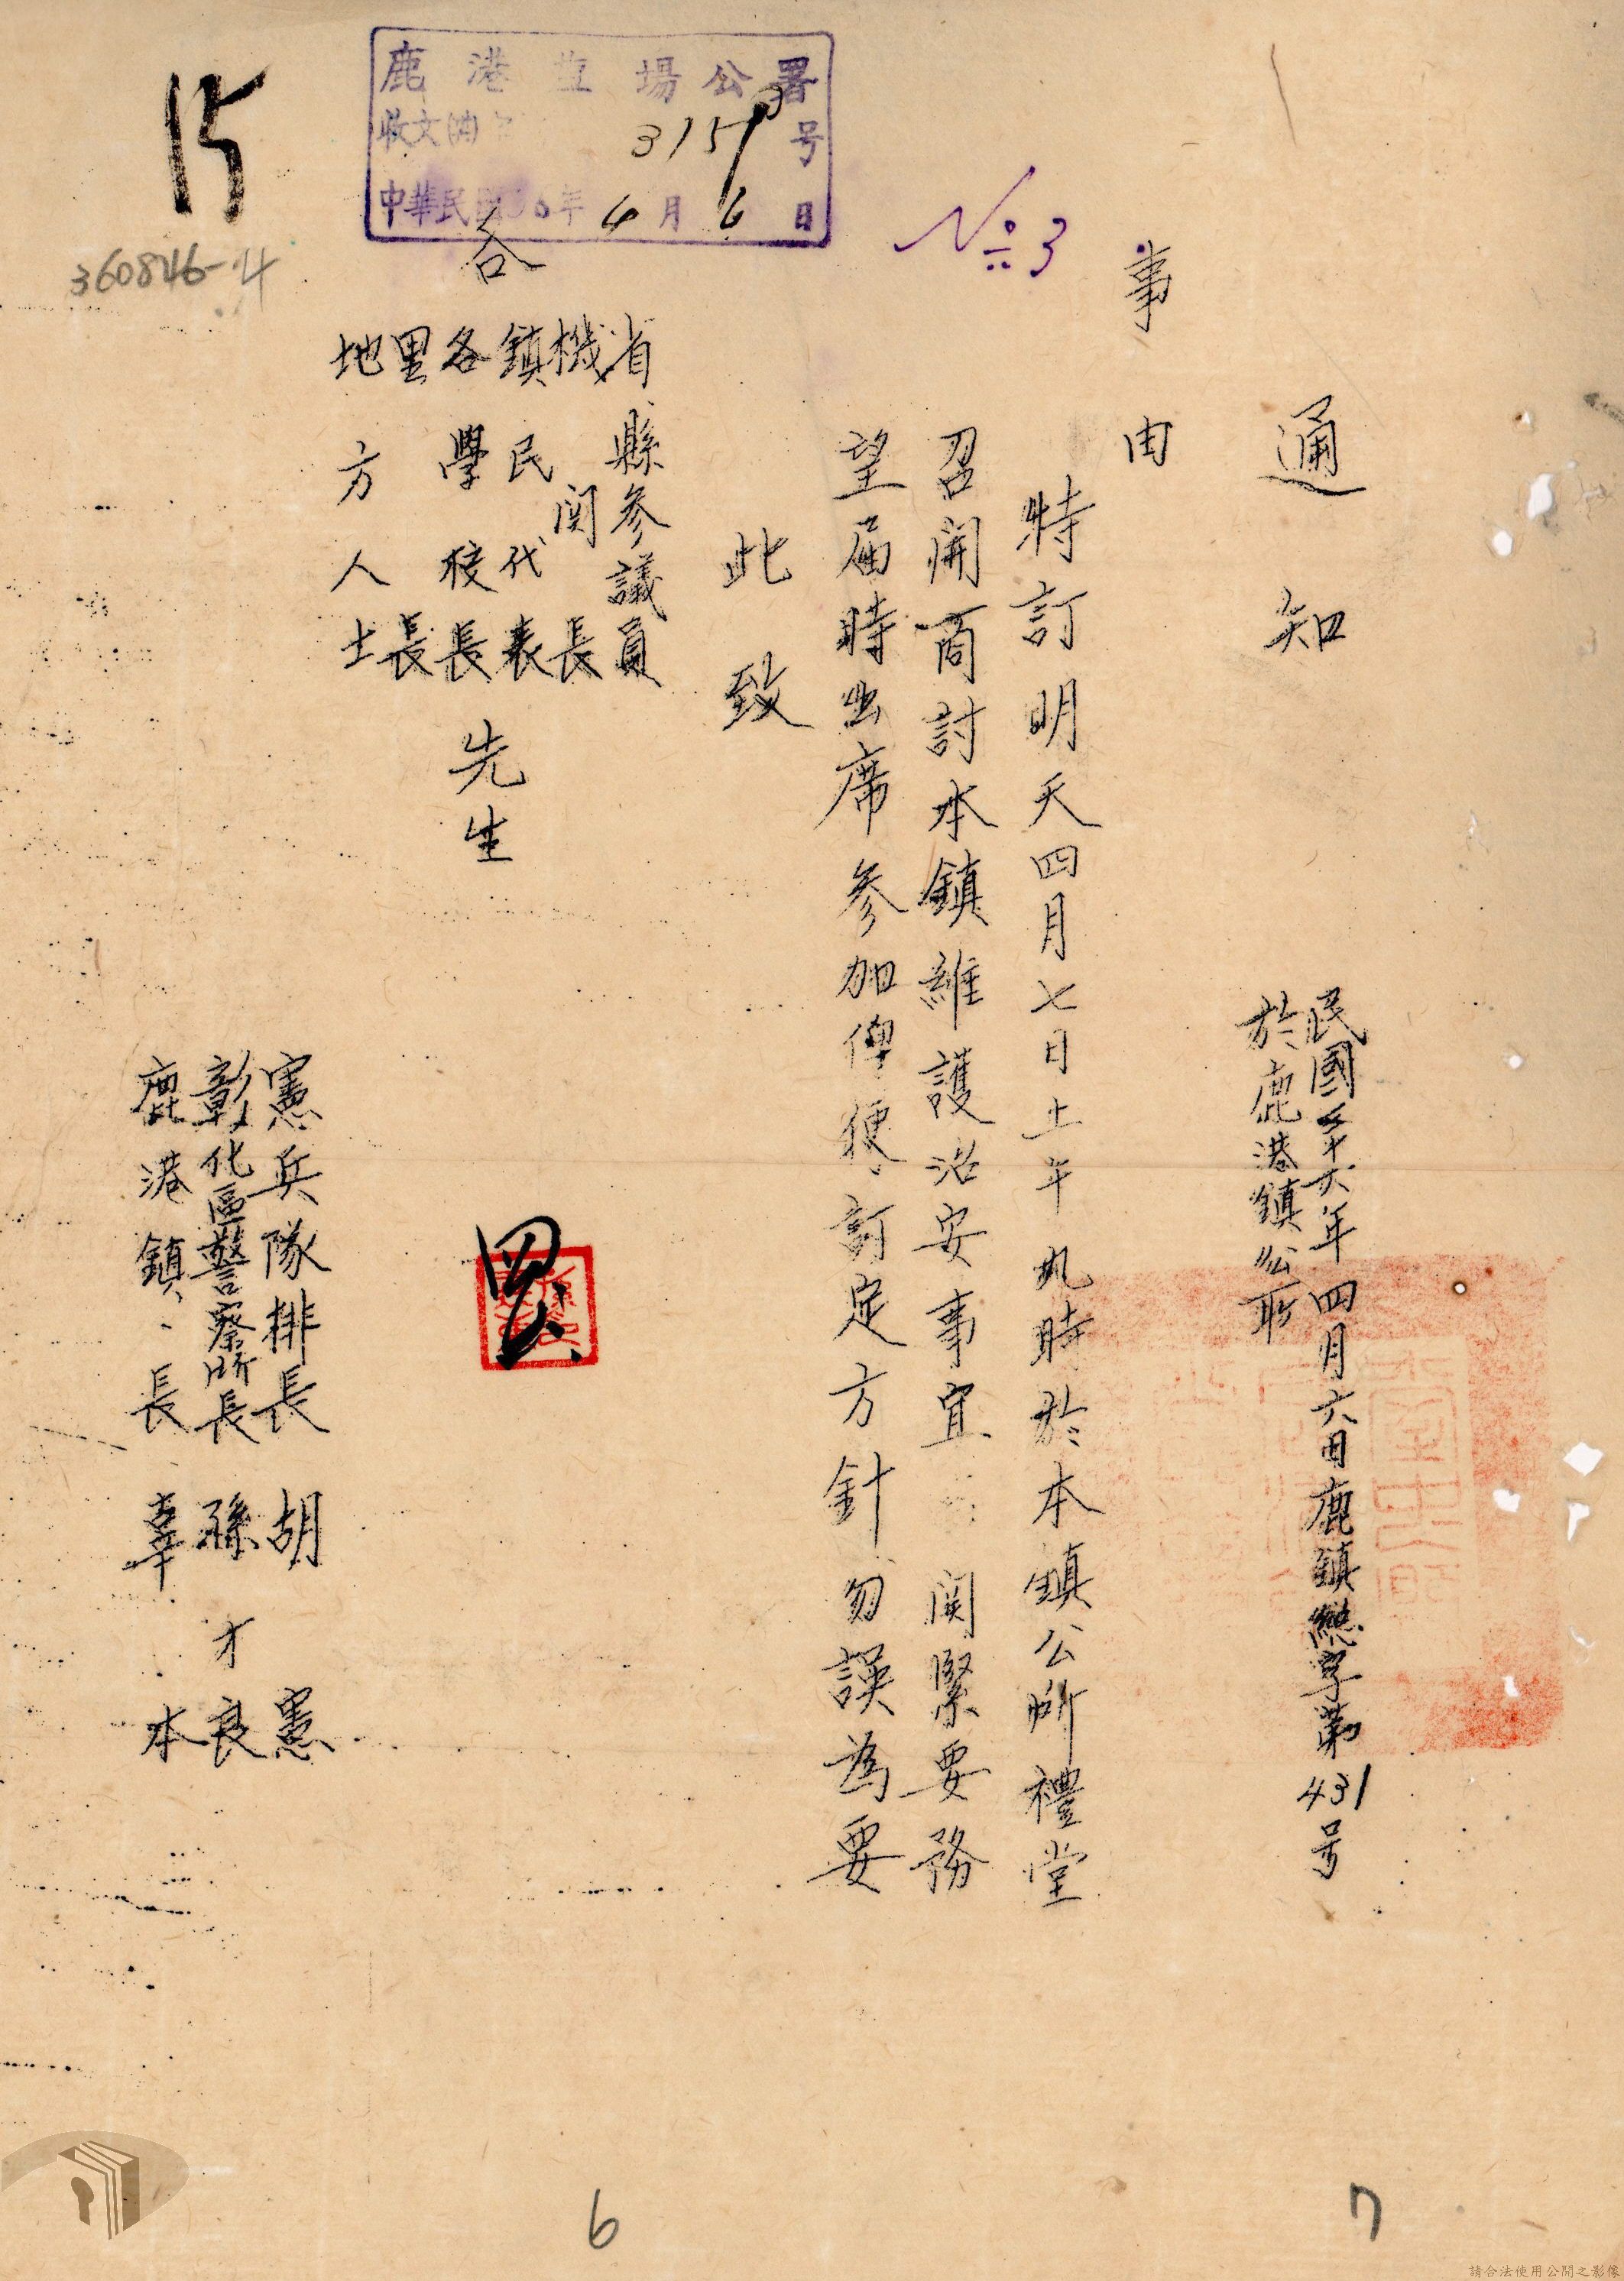 通知
民國三十六年四月六日鹿鎮總字第431号
於鹿港鎮公所
事由
特訂明天四月七日上午九時於本鎮公所禮堂
召開商討本鎮維護治安事宜關緊要務
望届時出席參加俾便訂定方針勿誤為要
此致
省縣參議員
機関長
鎮民代表
各學校長
里長
地方人士
各
先生
憲兵隊排長 胡憲
彰化區警察所長 孫才良
鹿港鎮長 辜本
鹿港 場公署
收文 3157号
中華民國36年4月6日
№3
15
360846-4
6
7
請合法使用公開之影像